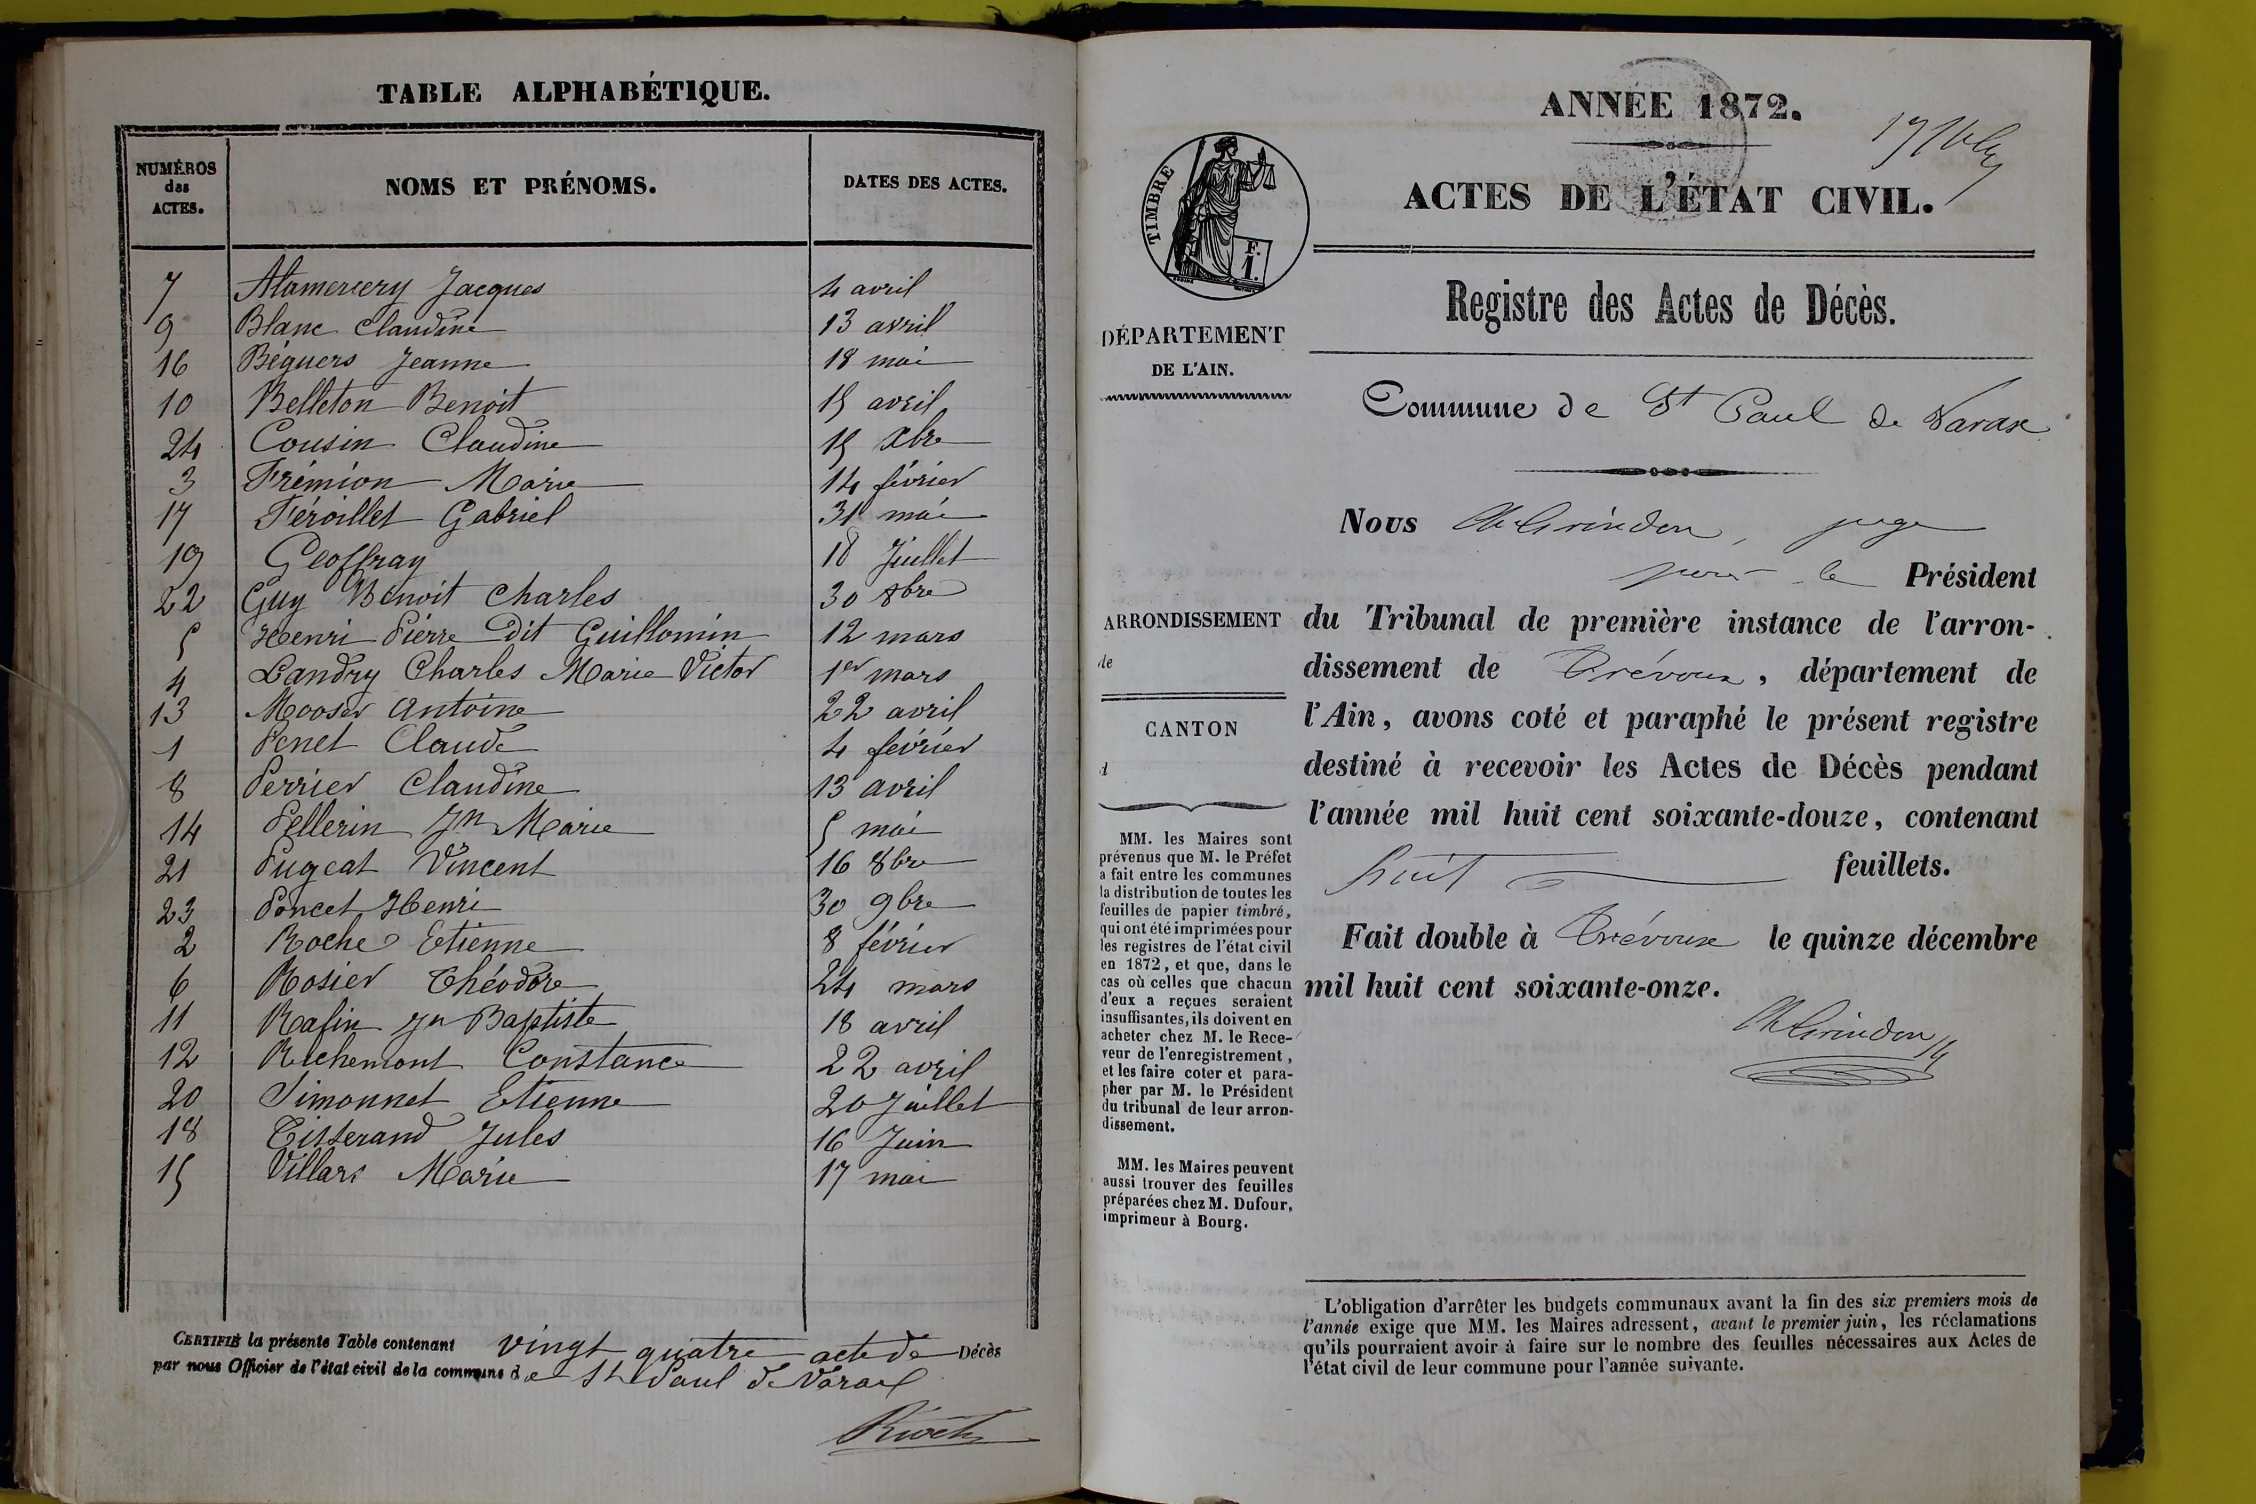 TABLE ALPHABÉTIQUE.
NUMÉROS des ACTES. NOMS ET PRÉNOMS. DATES DES ACTES.
7 Alamercery Jacques 4 avril
9 Blanc Claudine 13 avril
16 Béguers Jeanne 18 mai
10 Belleton Benoit 15 avril
24 Cousin Claudine 15 Xbre
3 Frémion Marie 14 février
17 Féroillet Gabriel 31 mai
19 Geoffray 18 Juillet
22 Guy Benoit Charles 30 8bre
5 Henri Pierre dit Guillomin 12 mars
4 Landry Charles Marie Victor 1er mars
13 Mooser Antoine 22 avril
1 Penet Claude 4 février
8 Perrier Claudine 13 avril
14 Pellerin Jn Marie 5 mai
21 Pugeat Vincent 16 8bre
23 Poncet Henri 30 9bre
2 Roche Etienne 8 février
6 Rosier Théodore 24 mars
11 Rafin Jn Baptiste 18 avril
12 Richemont Constance 22 avril
20 Simonnet Etienne 20 Juillet
18 Tisserand Jules 16 Juin
15 Villars Marie 17 mai
CERTIFIÉ la présente Table contenant vingt quatre acte de Décès
par nous Officier de l'état civil de la commune de St Paul de Varax
ANNÉE 1872.
ACTES DE L'ÉTAT CIVIL.
TIMBRE
F.
1.
DÉPARTEMENT
DE L'AIN.
ARRONDISSEMENT
de
CANTON
d
MM. les Maires sont
prévenus que M. le Préfet
a fait entre les communes
la distribution de toutes les
feuilles de papier timbré,
qui ont été imprimées pour
les registres de l'état civil
en 1872, et que, dans le
cas où celles que chacun
d'eux a reçues seraient
insuffisantes, ils doivent en
acheter chez M. le Rece-
veur de l'enregistrement,
et les faire coter et para-
pher par M. le Président
du tribunal de leur arron-
dissement.
MM. les Maires peuvent
aussi trouver des feuilles
préparées chez M. Dufour,
imprimeur à Bourg.
Registre des Actes de Décès.
Commune de St Paul de Varax
Nous Ch Grindon, juge
pour le Président
du Tribunal de première instance de l'arron-
dissement de Trévoux, département de
l'Ain, avons coté et paraphé le présent registre
destiné à recevoir les Actes de Décès pendant
l'année mil huit cent soixante-douze, contenant
huit feuillets.
Fait double à Trévoux le quinze décembre
mil huit cent soixante-onze.
Ch Grindon
L'obligation d'arrêter les budgets communaux avant la fin des six premiers mois de
l'année exige que MM. les Maires adressent, avant le premier juin, les réclamations
qu'ils pourraient avoir à faire sur le nombre des feuilles nécessaires aux Actes de
l'état civil de leur commune pour l'année suivante.